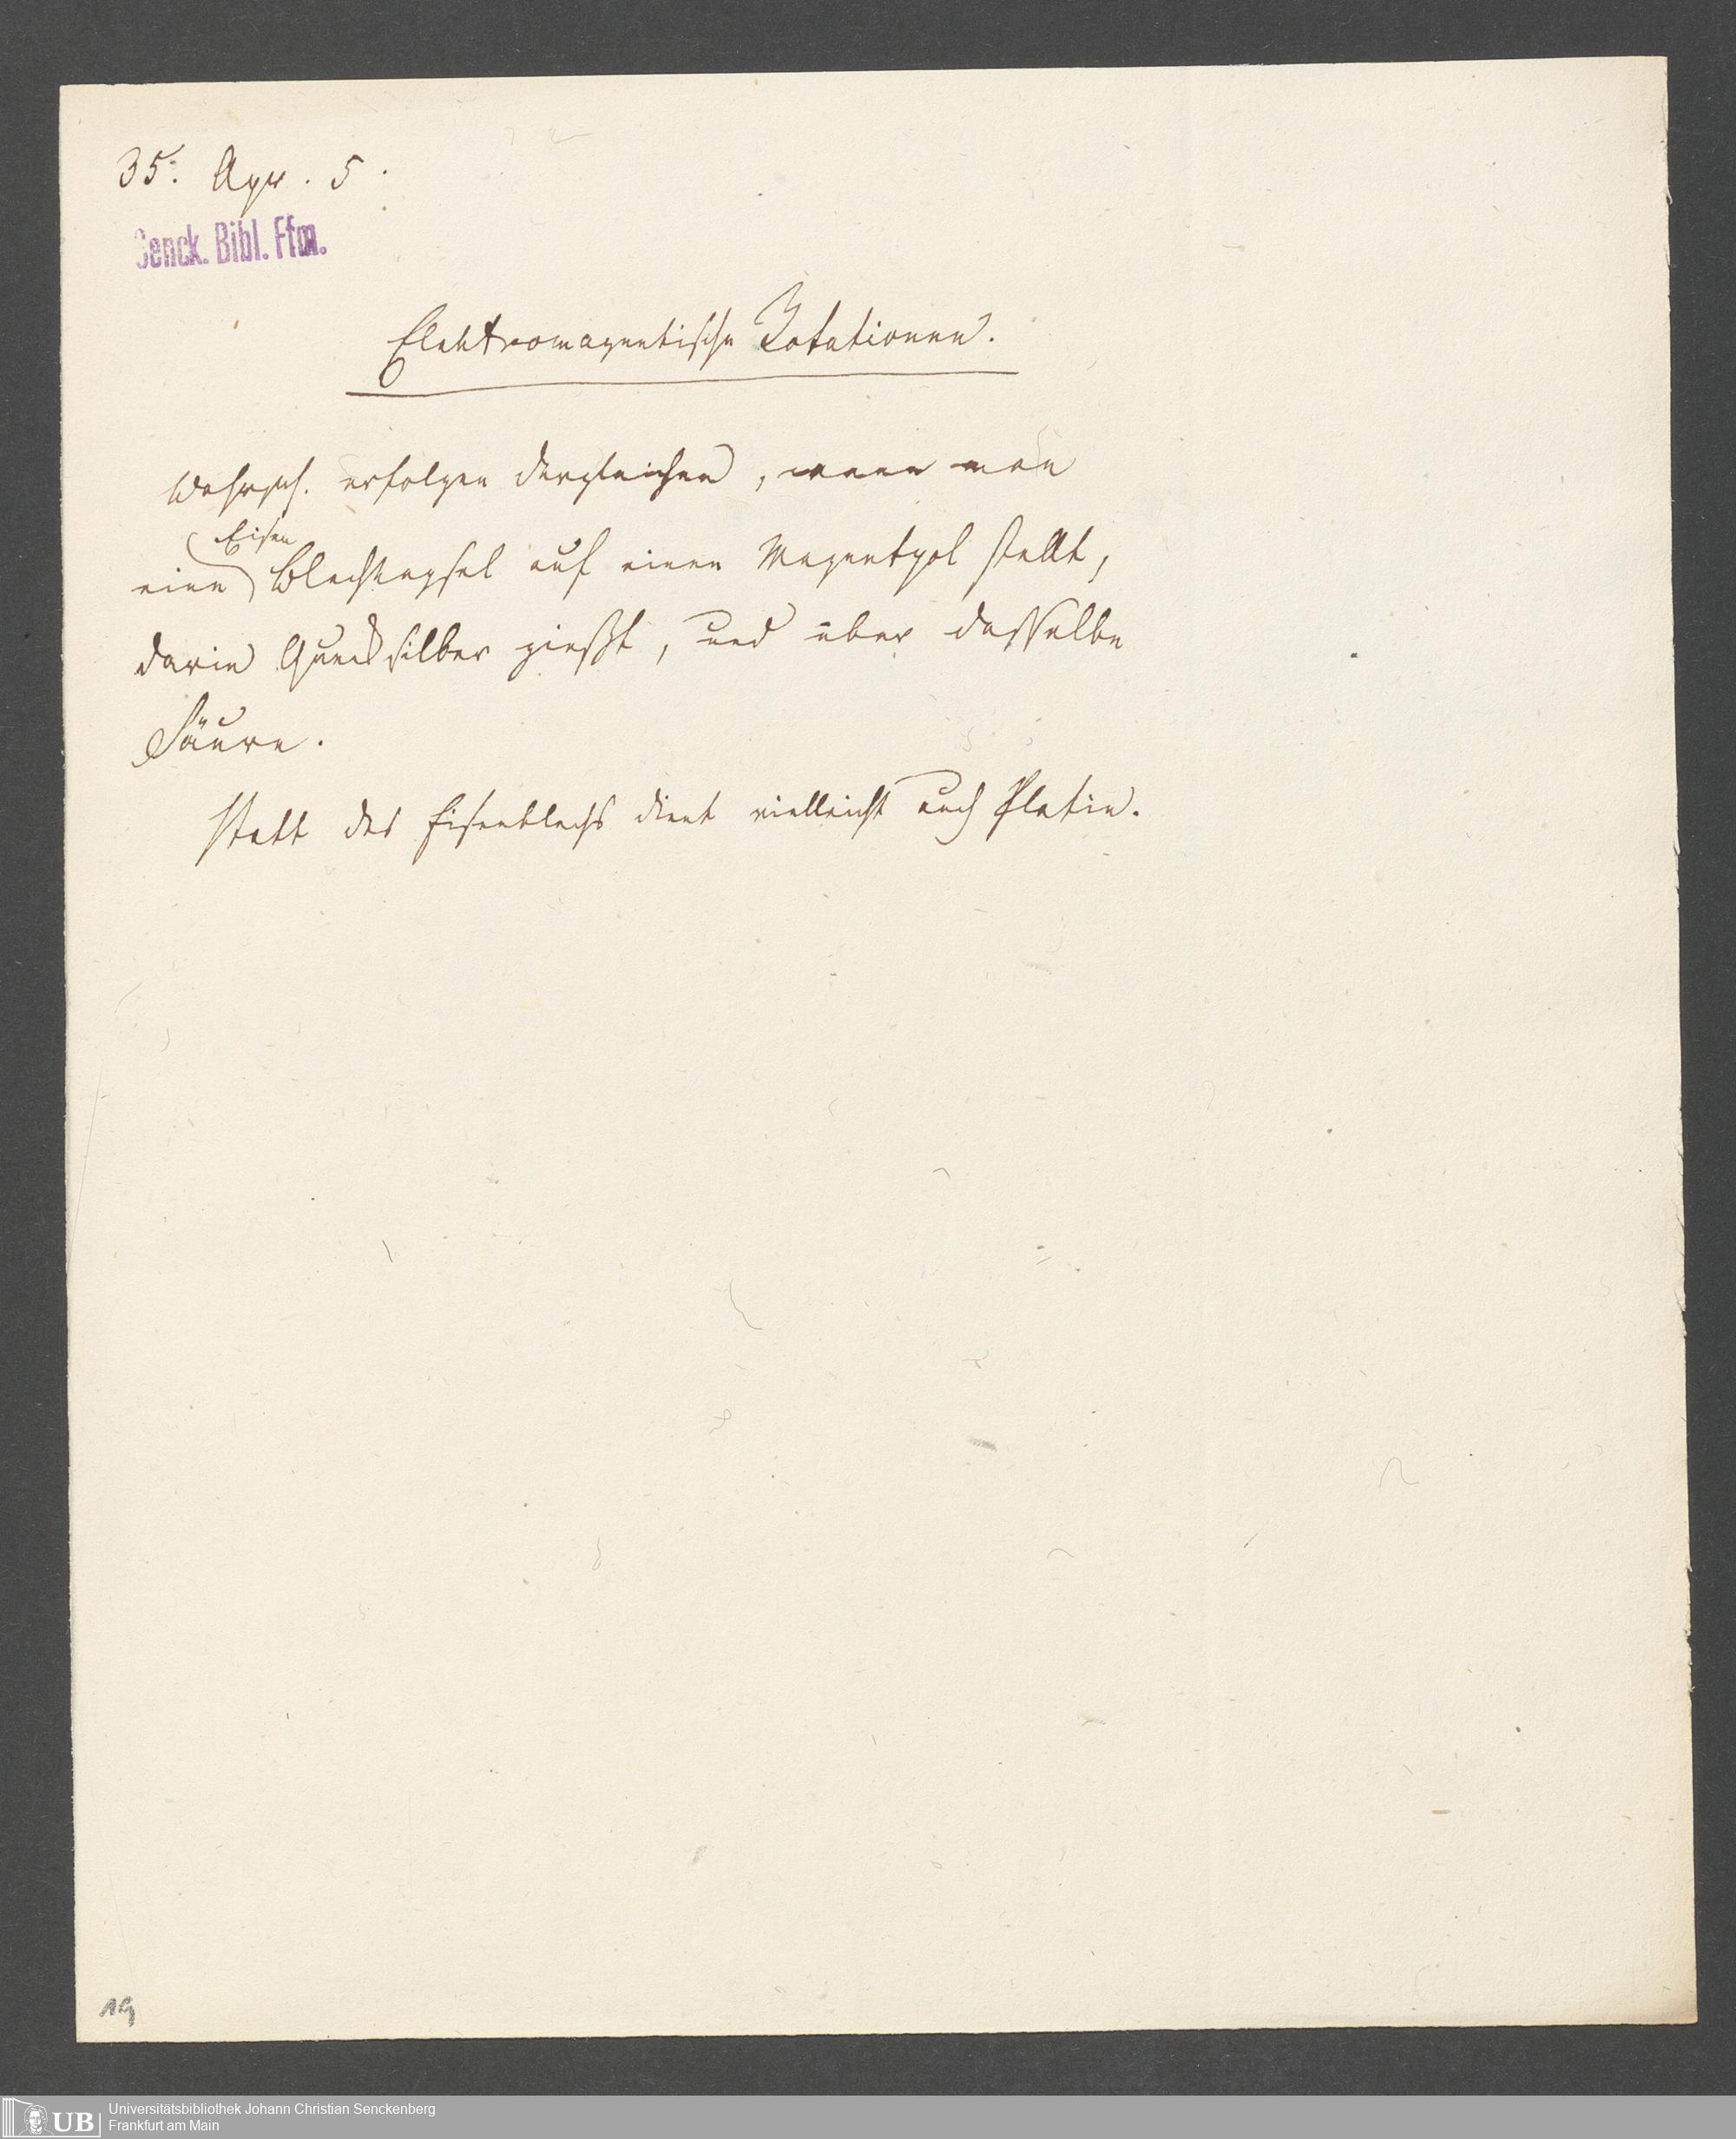 35. Apr. 5.
Senck. Bibl. Ffm.
Elektromagnetische Rotationen.
Wahrsch. erfolgen dergleichen, wenn man
Eisen
eine Blechkapsel auf einen Magnetpol stellt,
darin Quecksilber gießt, und über dasselbe
Säure.
Statt des Eisenblechs dient vielleicht auch Platin.
19
UB
Universitätsbibliothek Johann Christian Senckenberg
Frankfurt am Main